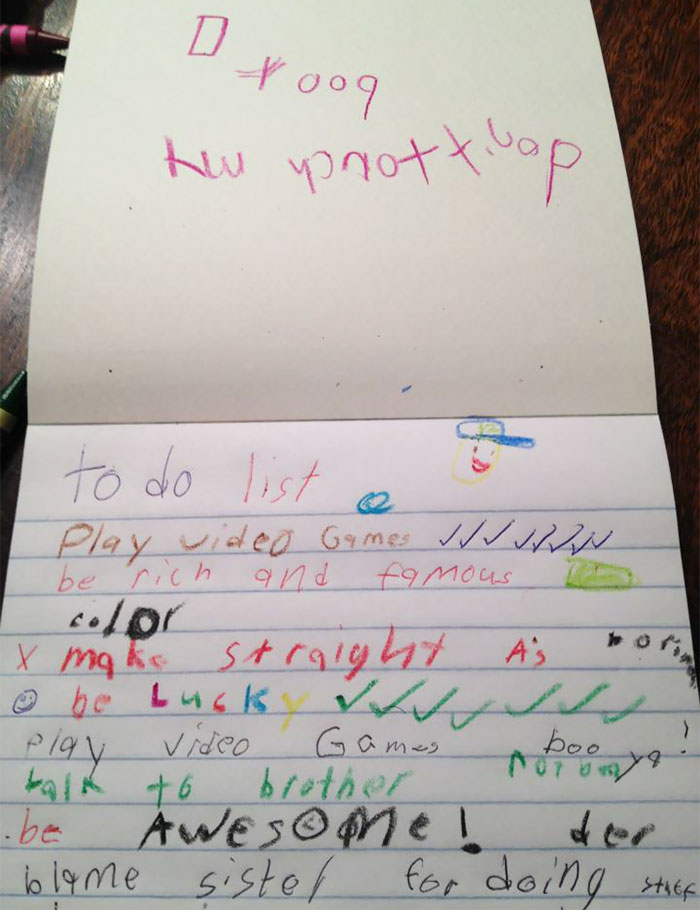 don't touch my
book
to do list
Play video Games ✓✓✓✓✓✓✓✓
be rich and famous
color
X make straight A's boring
be Lucky ✓✓✓✓✓✓✓
Play video Games boo ya!
talk to brother Not
be AWESOMe! der
blame sister for doing stuff